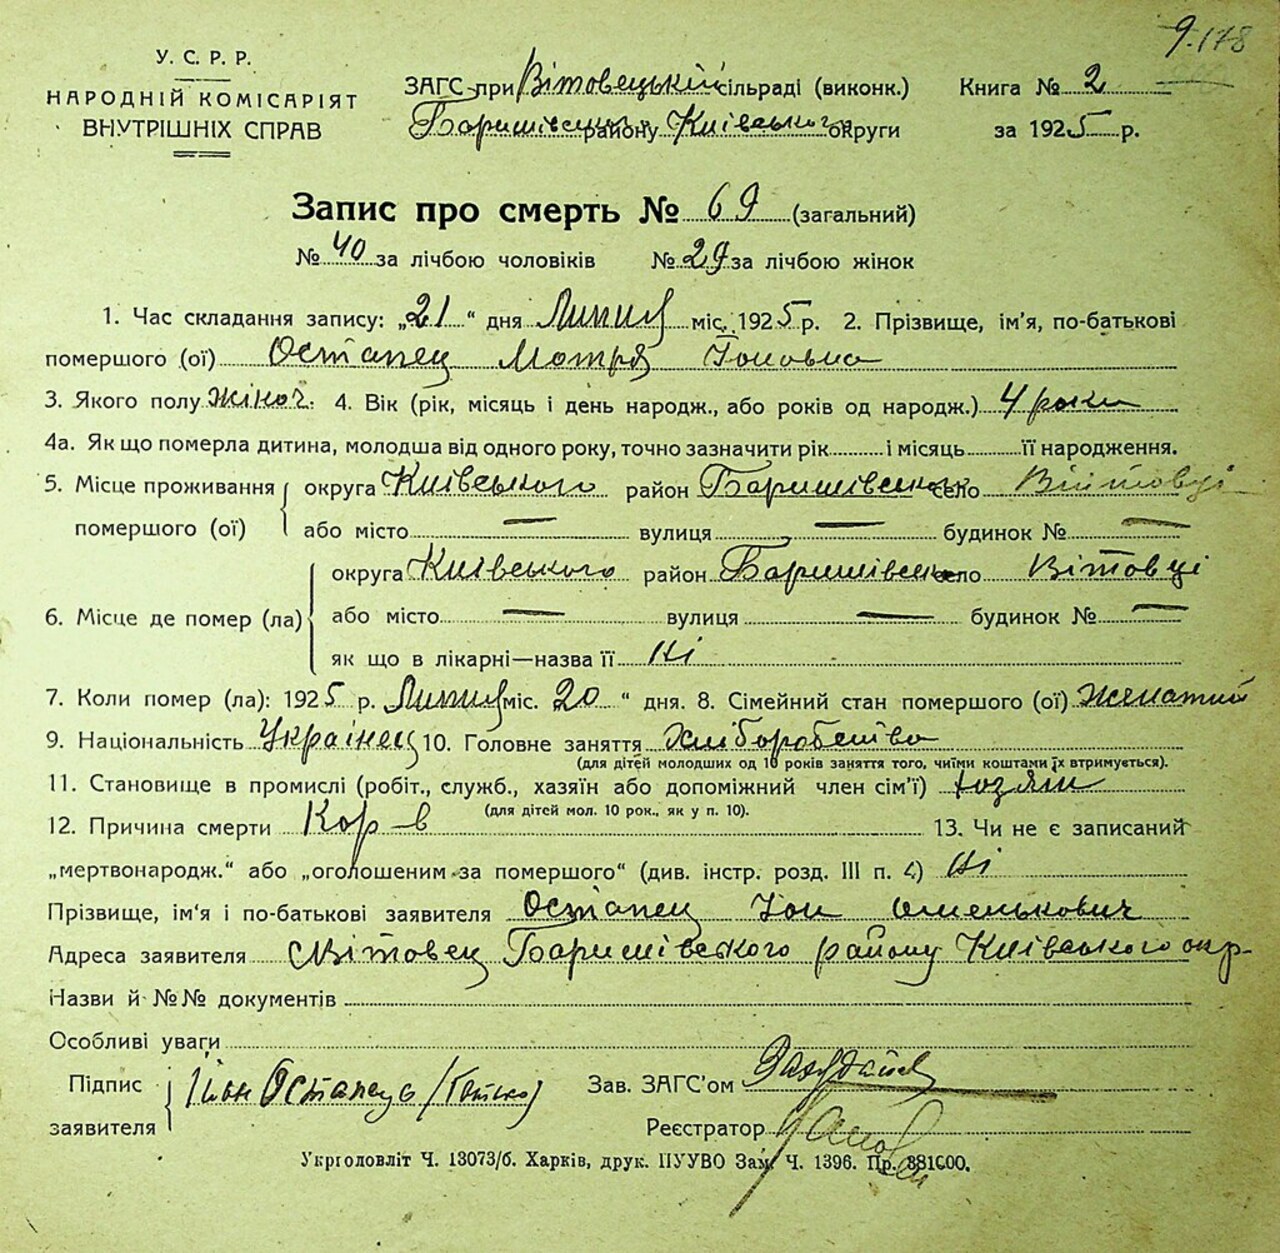 9.178
У. С. Р. Р.
НАРОДНІЙ КОМІСАРІЯТ
ВНУТРІШНІХ СПРАВ
ЗАГС при Вітовецькій сільраді (виконк.)
Баришівського району Київського округи
Книга № 2
за 1925 р.
Запис про смерть № 69 (загальний)
№ 40 за лічбою чоловіків № 29 за лічбою жінок
1. Час складання запису: „21“ дня Липня міс. 1925 р. 2. Прізвище, ім'я, по-батькові
помершого (ої) Остапец Мотря Іоновна
3. Якого полу жіноч. 4. Вік (рік, місяць і день народж., або років од народж.) 4 роки
4а. Як що померла дитина, молодша від одного року, точно зазначити рік і місяць її народження.
5. Місце проживання помершого (ої) округа Київського район Баришівського село Війтовці
або місто — вулиця — будинок № —
6. Місце де помер (ла) округа Київського район Баришівське село Вітовці
або місто — вулиця — будинок № —
як що в лікарні—назва її Ні
7. Коли помер (ла): 1925 р. Липня міс. 20 “ дня. 8. Сімейний стан помершого (ої) Женатий
9. Національність Українец 10. Головне заняття Хліборобство
(для дітей молодших од 10 років заняття того, чиїми коштами їх втримується).
11. Становище в промислі (робіт., служб., хазяїн або допоміжний член сім'ї) хозяин
(для дітей мол. 10 рок., як у п. 10).
12. Причина смерти Кор-в 13. Чи не є записаний
„мертвонародж.“ або „оголошеним за помершого“ (див. інстр. розд. III п. 4) Ні
Прізвище, ім'я і по-батькові заявителя Остапец Іон
Адреса заявителя с Вітовец Баришівського району Київського окр-
Назви й №№ документів
Особливі уваги
Підпис заявителя Йон Остапець
Зав. ЗАГС'ом
Реєстратор
Укрголовліт Ч. 13073/б. Харків, друк. ПУУВО Зам. Ч. 1396. Пр. 381600.